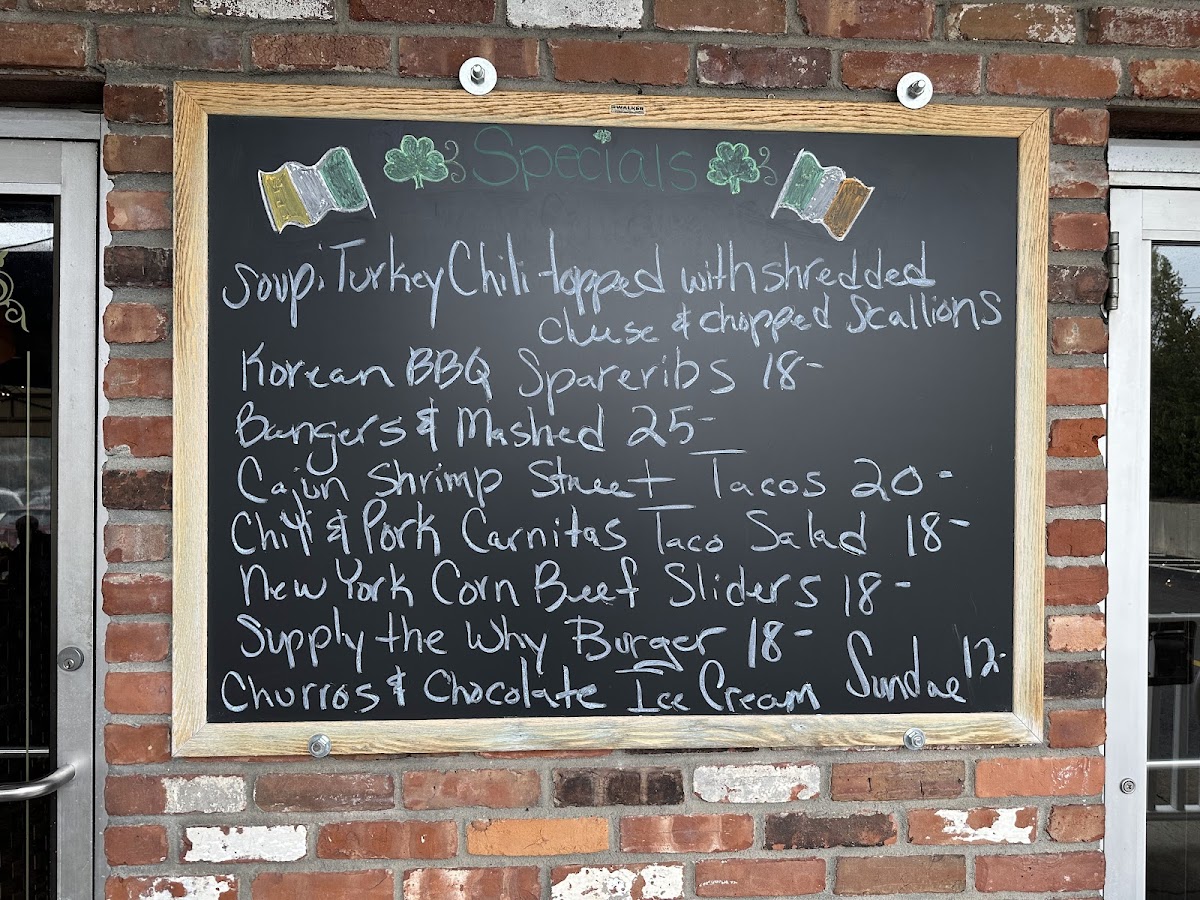 WALKER
Specials
Soup: Turkey Chili topped with shredded
cheese & chopped Scallions
Korean BBQ Spareribs 18-
Bangers & Mashed 25-
Cajun Shrimp Street Tacos 20-
Chili & Pork Carnitas Taco Salad 18-
New York Corn Beef Sliders 18-
Supply the Why Burger 18-
Churros & Chocolate Ice Cream Sundae 12-